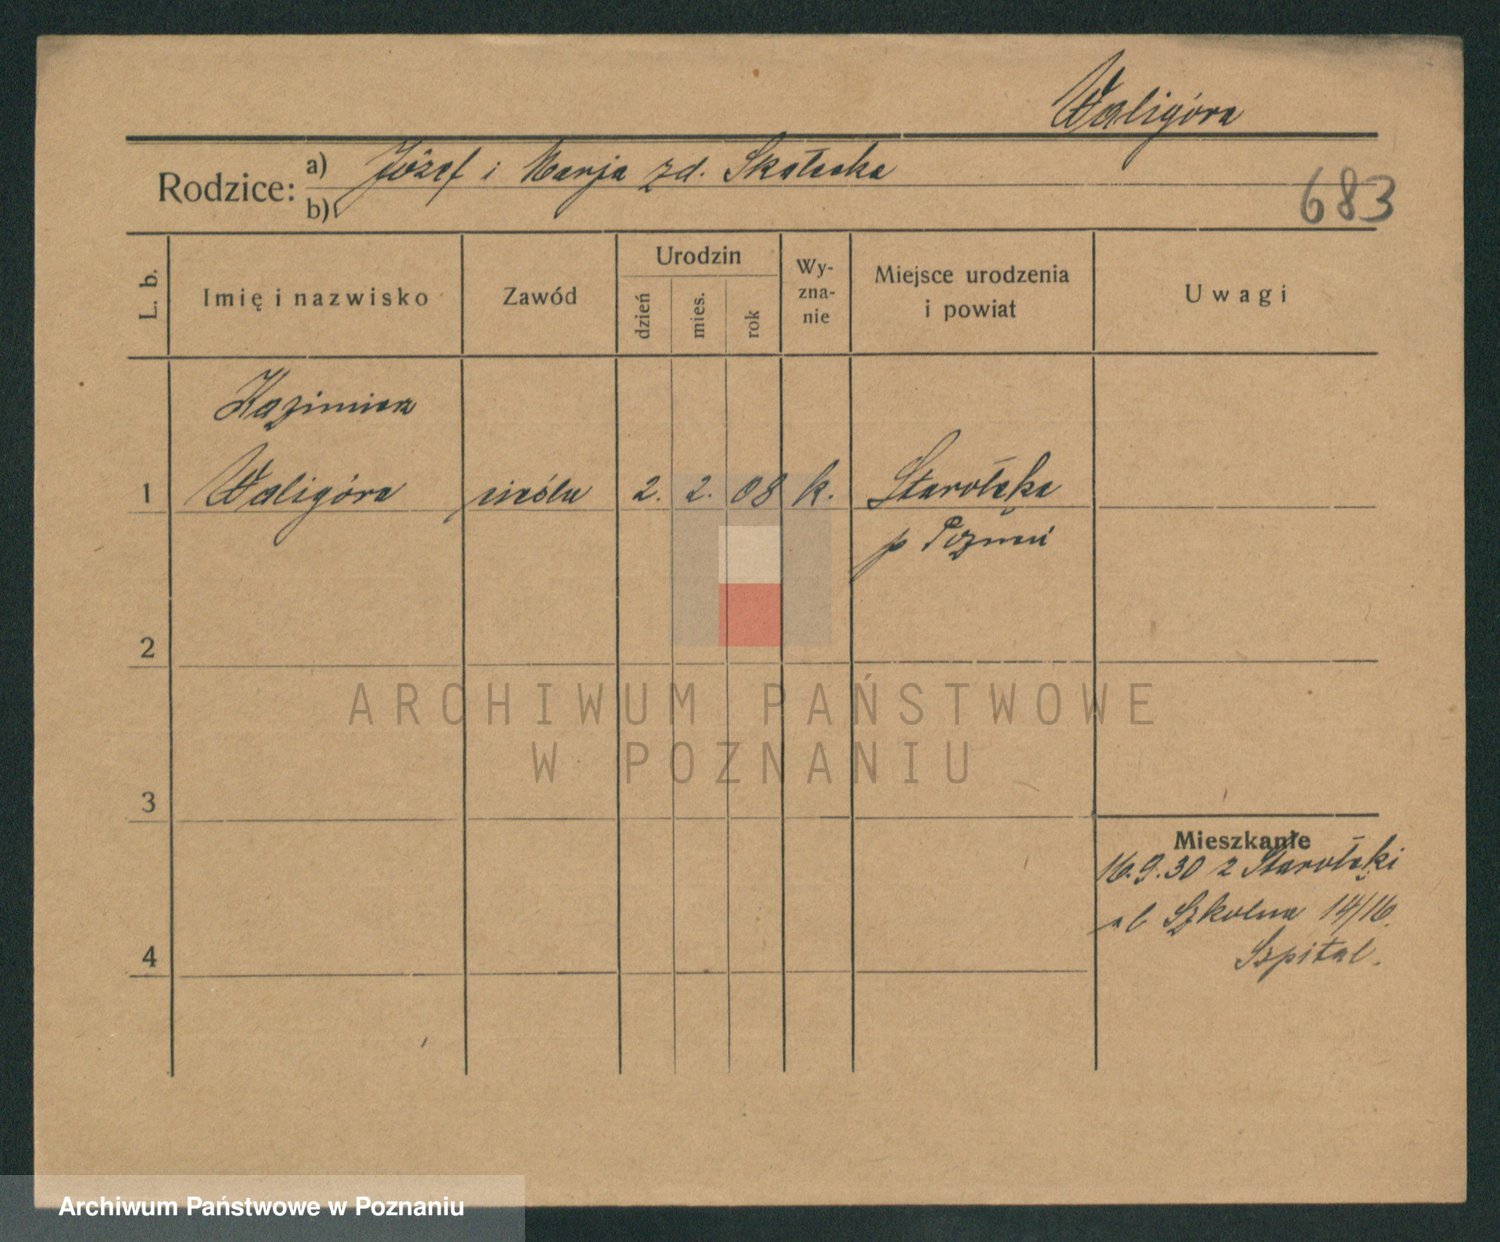 Waligóra
Rodzice: a) Józef i Marja zd. Skałecka
b)
683
L. b.
Imię i nazwisko
Zawód
Urodzin
dzień
mies.
rok
Wy-
zna-
nie
Miejsce urodzenia
i powiat
Uwagi
Kazimierz
1 Waligóra cieśla 2. 2. 08 k. Starołęka
p Poznań
2
ARCHIWUM PAŃSTWOWE
W POZNANIU
3
Mieszkanie
16.9.30 z Starołęki
Szkolna 14/16.
4
Szpital.
Archiwum Państwowe w Poznaniu